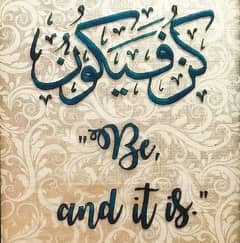 كُنْ فَيَكُوْنُ
"Be,
and it is."